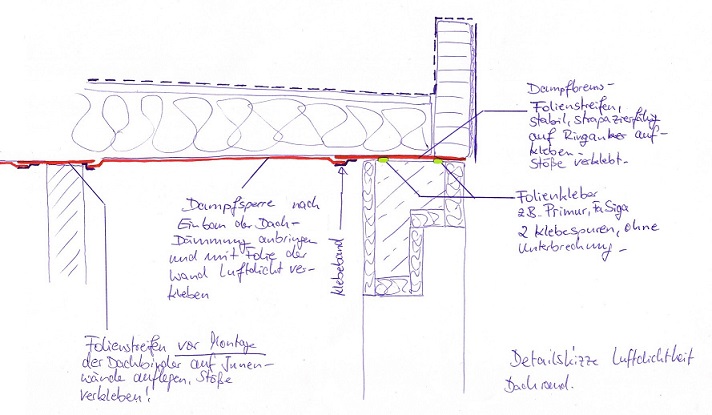 Dampfbrems-
Folienstreifen,
stabil, strapazierfähig
auf Ringanker auf-
kleben.
Stöße verklebt.
Folienkleber
z.B. Primur, Fa Siga
2 Klebespuren, ohne
Unterbrechung
Dampfsperre nach
Einbau der Dach-
Dämmung anbringen
und mit Folie der
Wand Luftdicht ver-
kleben
Klebeband
Folienstreifen vor Montage
der Dachbinder auf Innen-
wände auflegen, Stöße
verkleben!
Detailskizze Luftdichtheit
Dachrand.